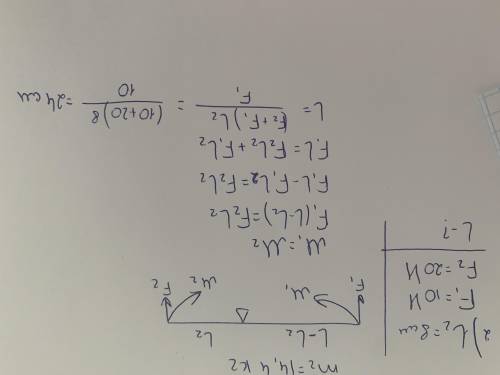 m₂ = 14,4 кг
2) L₂ = 8 см
F₁ = 10 Н
F₂ = 20 Н
L - ?
L - L₂ L₂
F₁ M₁ M₂ F₂
M₁ = M₂
F₁(L - L₂) = F₂L₂
F₁L - F₁L₂ = F₂L₂
F₁L = F₂L₂ + F₁L₂
L = (F₂ + F₁)L₂ / F₁ = (10 + 20)8 / 10 = 24 см